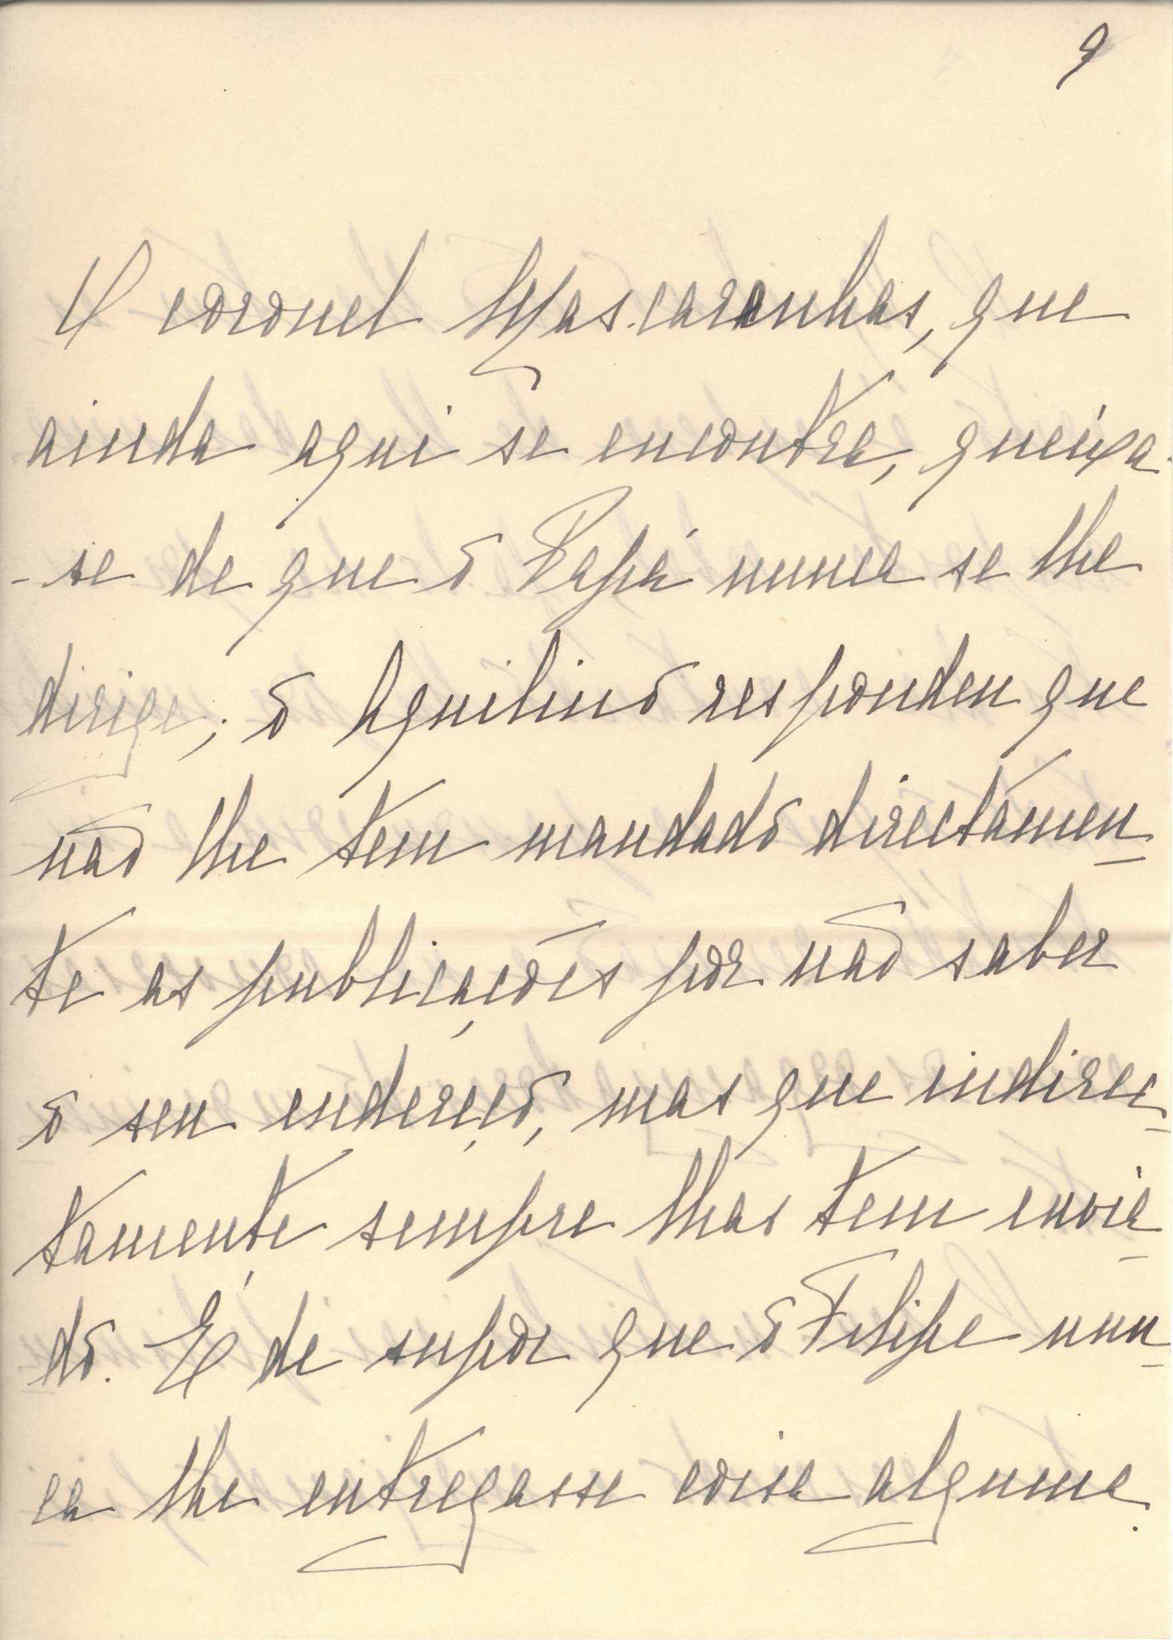 9
O coronel Mascaranhas, que
ainda aqui se encontra, queixa-
-se de que o Papá nunca se lhe
dirige; o Aquilino respondeu que
não lhe tem mandado directamen-
te as publicações por não saber
o seu endereço, mas que indirec-
tamente sempre lhas tem envia-
do. É de supor que o Filipe nun-
ca lhe entregasse coisa alguma.